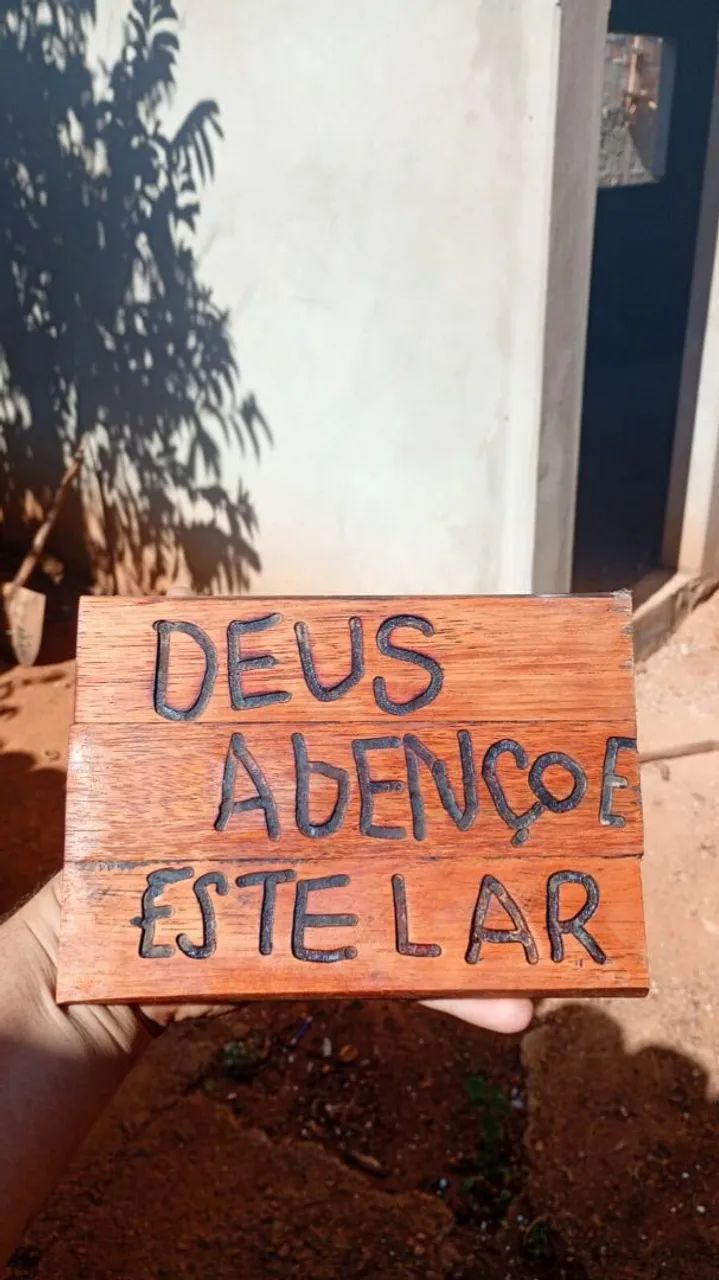 DEUS
AbENÇOE
ESTE LAR